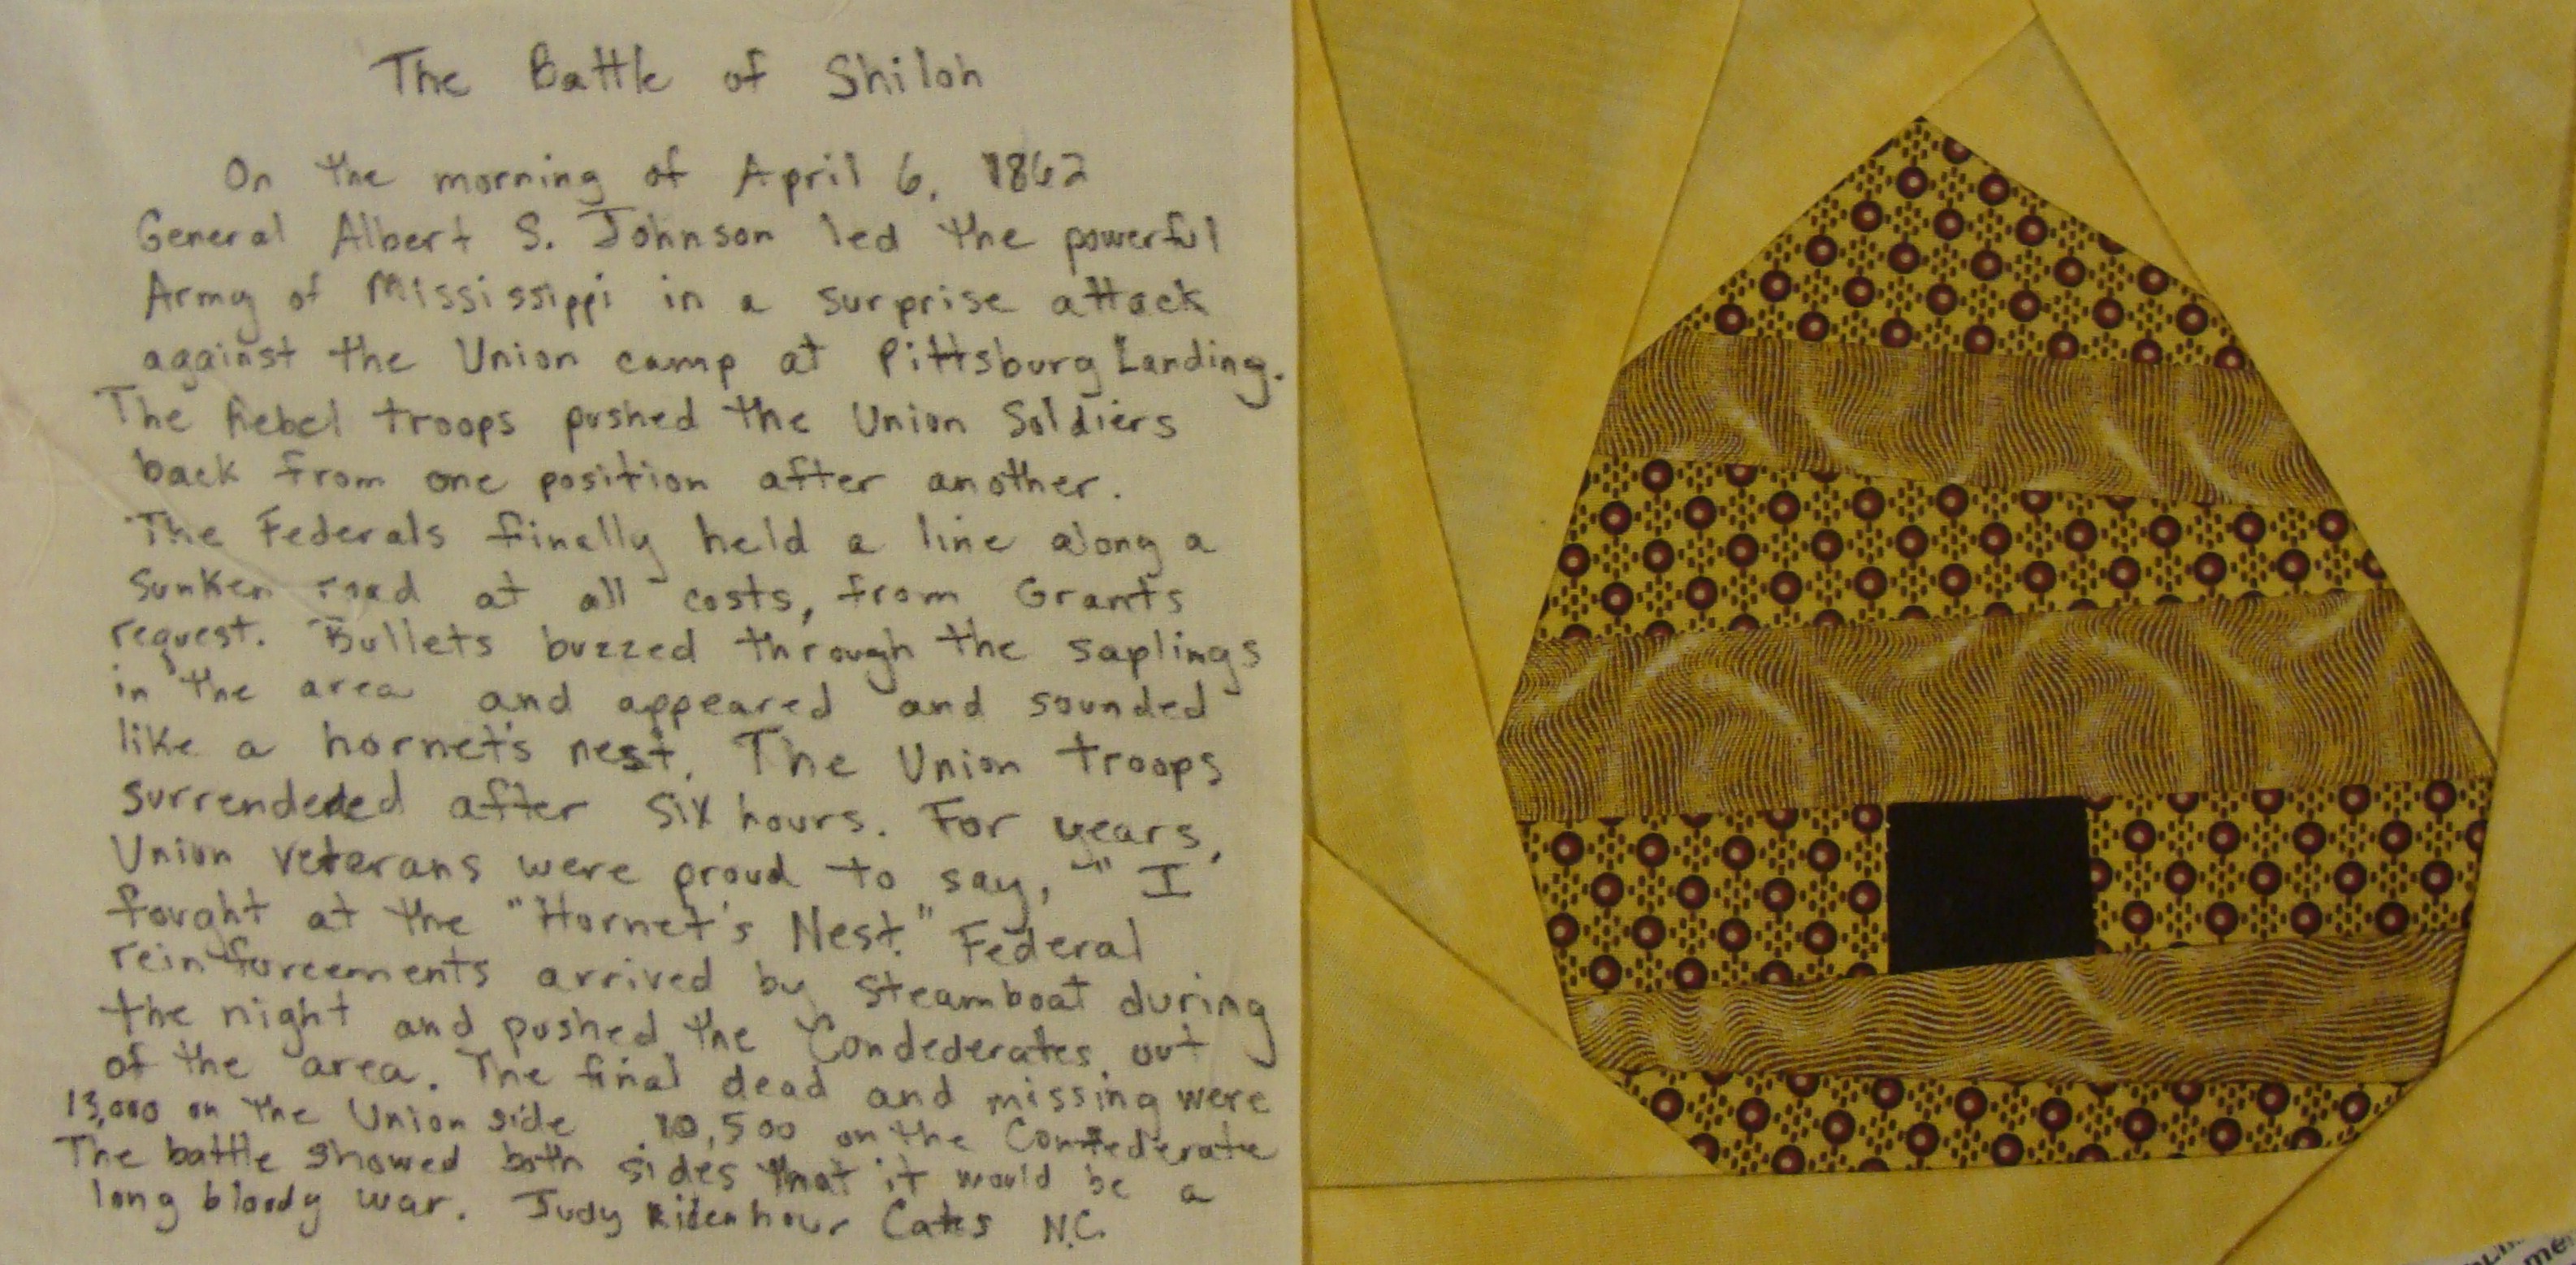 The Battle of Shiloh
On the morning of April 6, 1862
General Albert S. Johnson led the powerful
Army of Mississippi in a surprise attack
against the Union camp at Pittsburg Landing.
The Rebel troops pushed the Union Soldiers
back from one position after another.
The Federals finally held a line along a
sunken road at all costs, from Grants
request. Bullets buzzed through the saplings
in the area and appeared and sounded
like a hornet's nest. The Union troops
surrendeded after six hours. For years,
Union veterans were proud to say, "I
fought at the "Hornet's Nest." Federal
reinforcements arrived by steamboat during
the night and pushed the Condederates out
of the area. The final dead and missing were
13,000 on the Union side 10,500 on the Confederate
The battle showed both sides that it would be a
long bloody war. Judy Ridenhour Cates N.C.